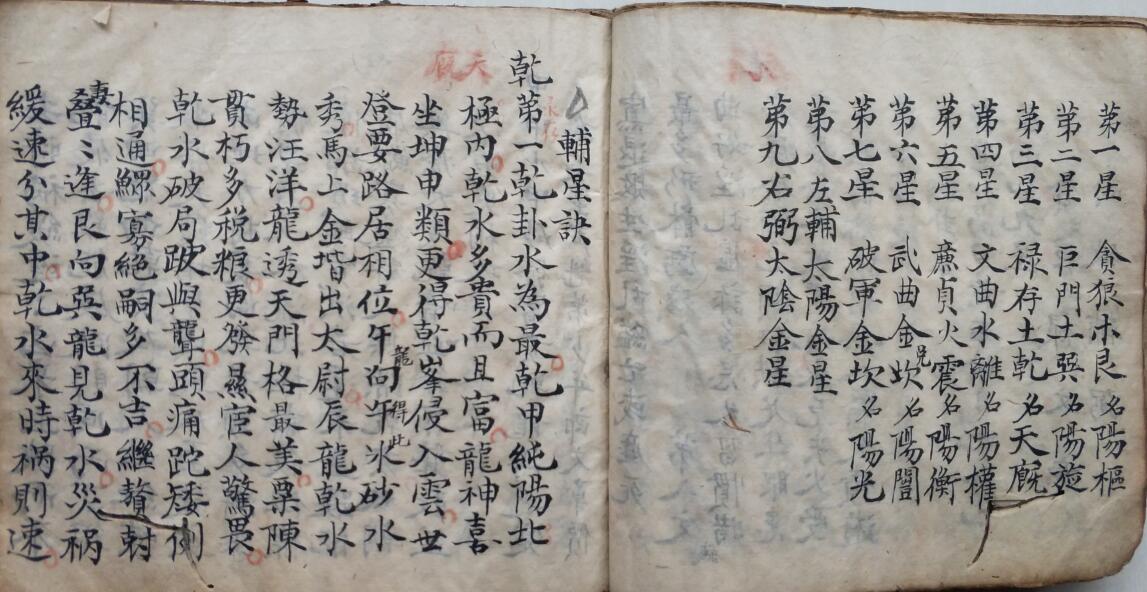 第一星 貪狼木艮 名陽樞
第二星 巨門土巽 名陽璇
第三星 禄存土乾 名天厩
第四星 文曲水離 名陽權
第五星 廉貞火震 名陽衡
第六星 武曲金兑 名陽闓
第七星 破軍金坎 名陽光
第八左輔太陽金星
第九右弼太陰金星
輔星訣
天厩
乾第一乾卦水為最乾甲純陽北
極内乾水多貴而且富龍神喜
坐坤申類更得乾峯侵入雲世
燈要路居相位午龍向午得此水砂水
秀馬上金堦出太尉辰龍乾水
勢汪洋龍透天門格最美粟陳
貫朽多税粮更發县宦人驚畏
乾水破局跛與聾頭痛跎矮側
相通鰥寡絶嗣多不吉繼贅射
妻疊〻逢艮向巽龍見乾水災祸
緩速分其中乾水來時祸則速